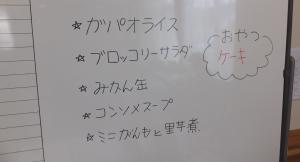 ☆ガパオライス
☆ブロッコリーサラダ
☆みかん缶
☆コンソメスープ
☆ミニがんもと里芋煮
おやつ
ケーキ